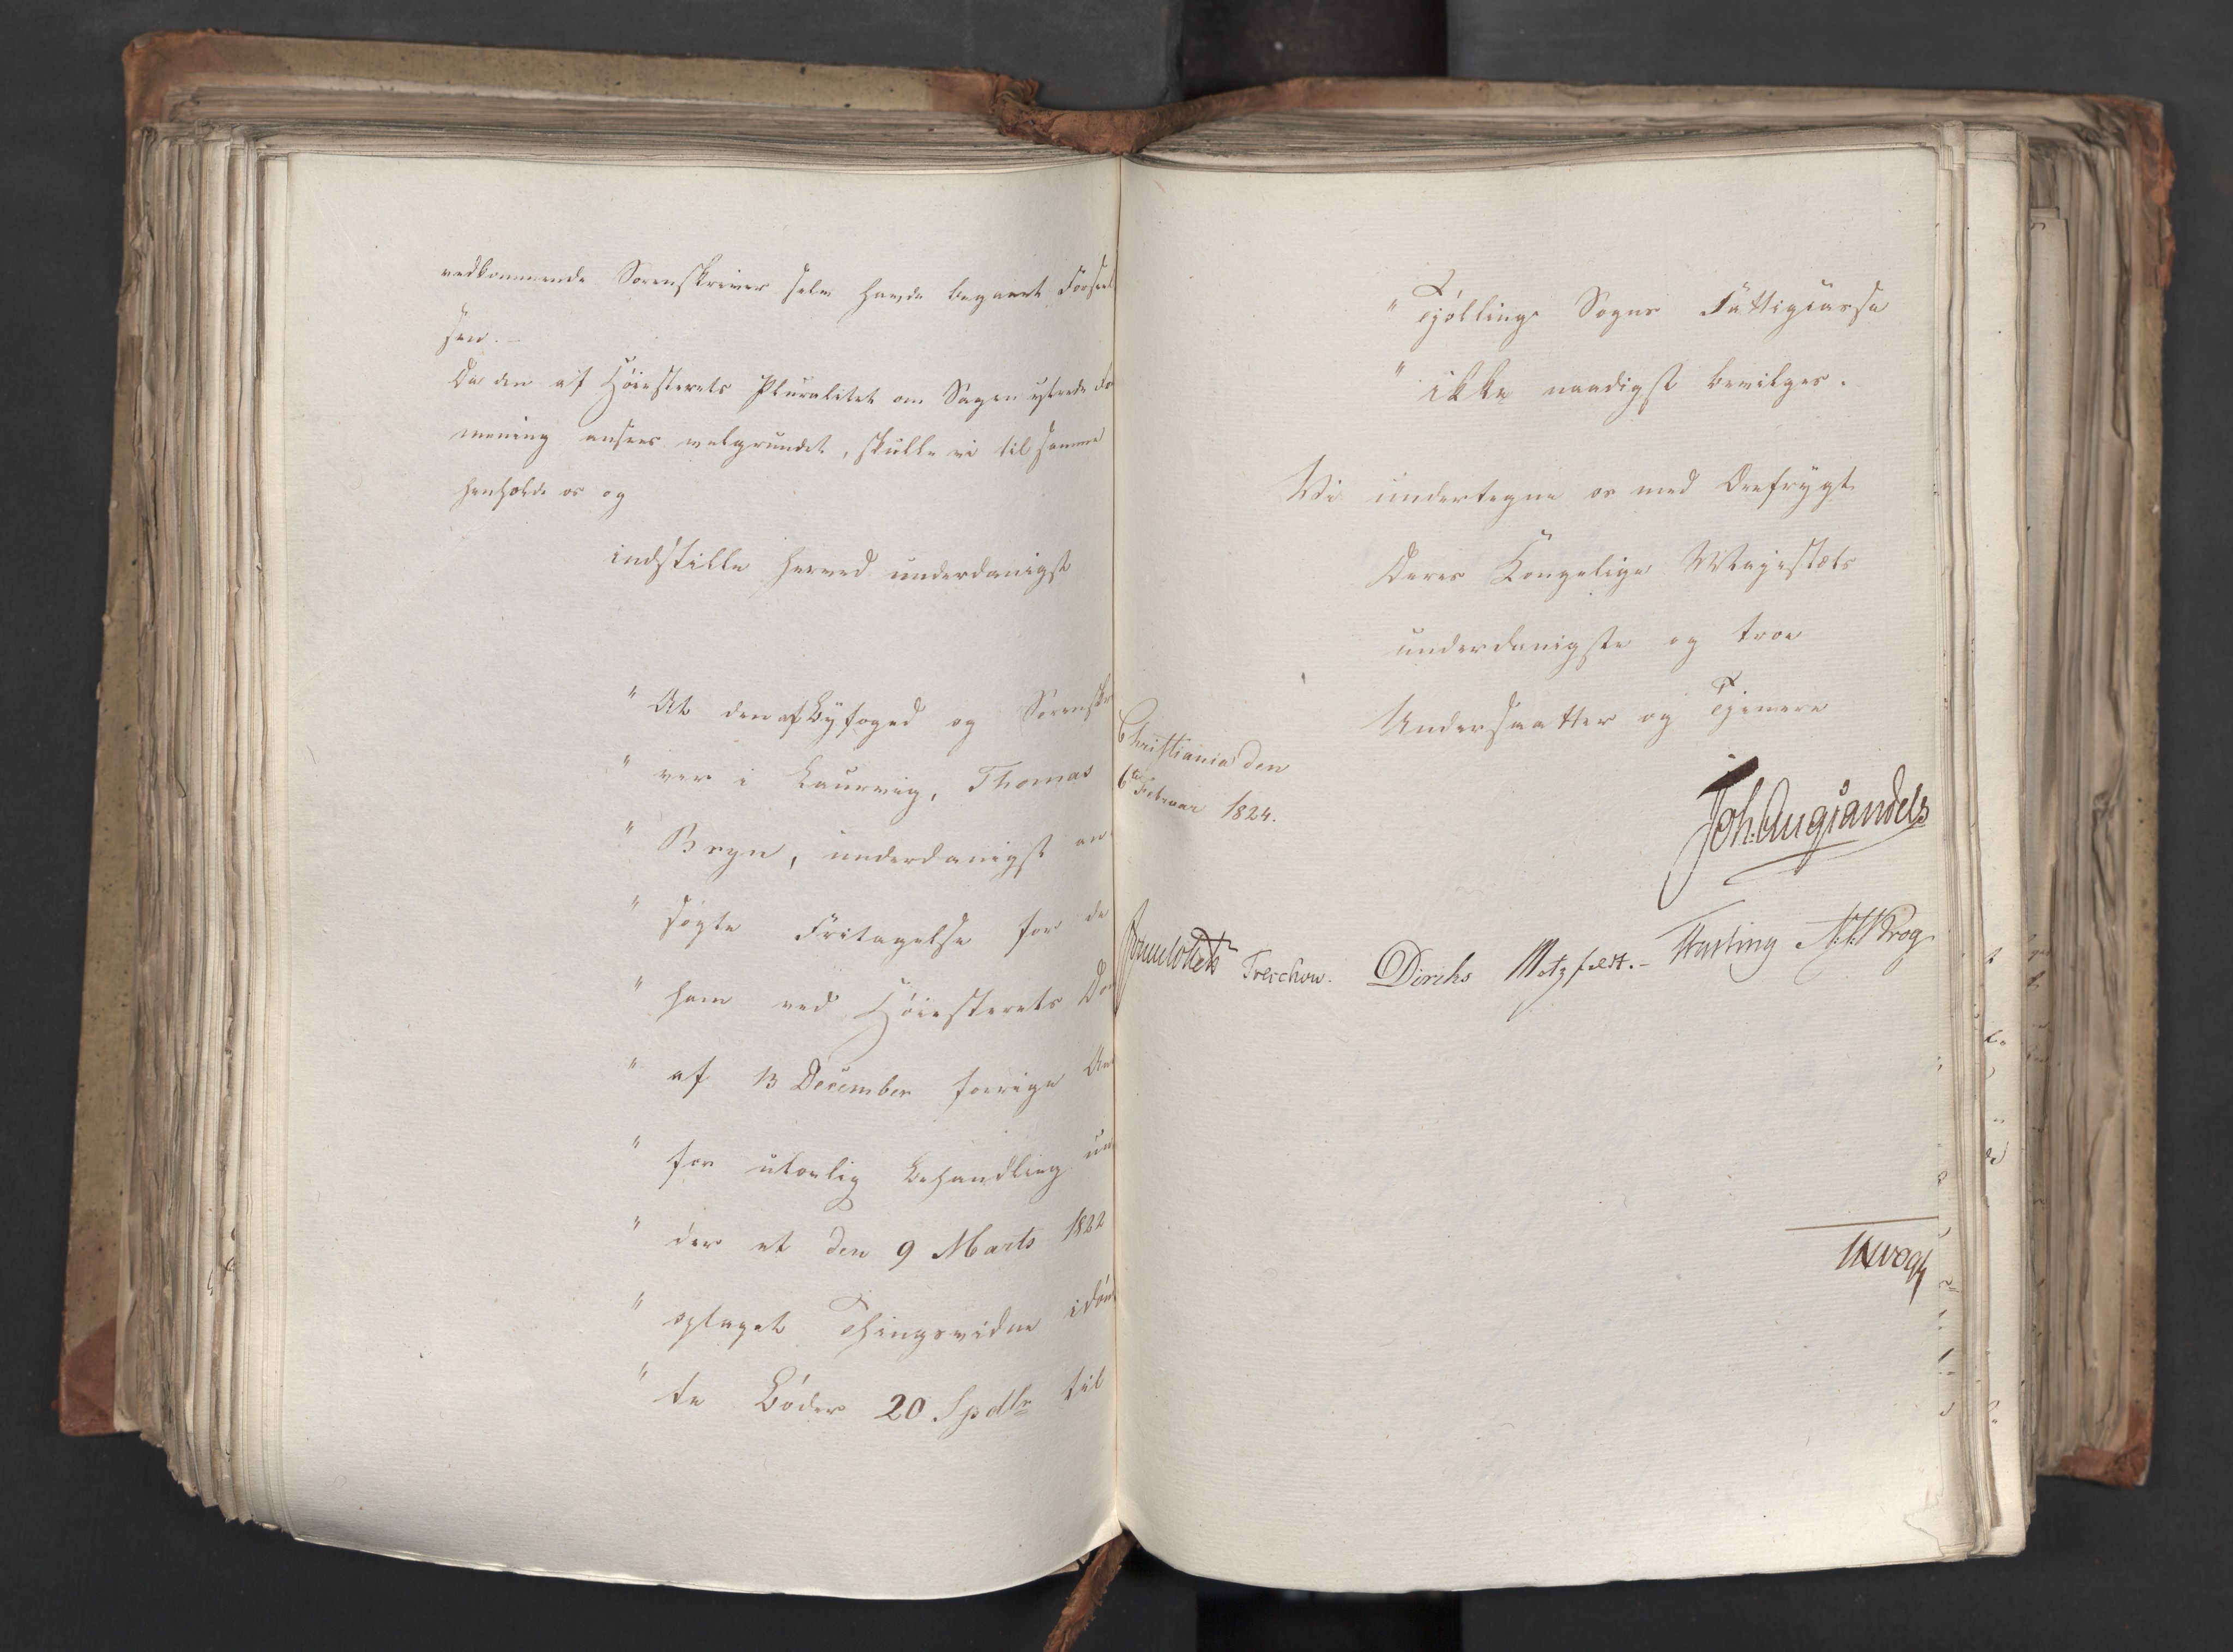 vedkommende Sorenskriver selv havde begaaet Forseel
sen. –
Da den af Høiesterets Pluralitet om Sagen yttrede For
mening ansees velgrundet, skulle vi til samme
henholde os og
indstille herved underdanigst
" At den af Byfoged og Sorenskri
" ver i Laurvig, Thomas
" Bryn, underdanigst an
" søgte Fritagelse for de
" ham ved Høiesterets Dom
" af 13 December forrige Aar
" for ulovlig Behandling un
" der et den 9 Marts 1822
" optaget Thingsvidne idøm
" te Bøder 20 Spdlr til
" Tjøllings Sogns Fattigcasse
" ikke naadigst bevilges.
Vi undertegne os med Ærefrygt
Deres Kongelige Majestæts
underdanigste og troe
Undersaatter og Tjenere
Christiania den
6te Februar 1824.
Joh. Aug. Sandels
Sommerhielm Treschow. Diriks Motzfeldt. – Fasting N. Krog
Vogt